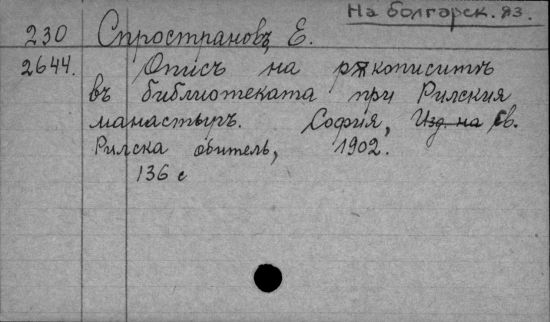 На болгарск. яз.
230 Спространовъ Е.
2644. Описъ на рѫкописитѣ
въ библиотеката при Рилския
манастыръ. София, Изд. на Св.
Рилска обитель, 1902.
136 с